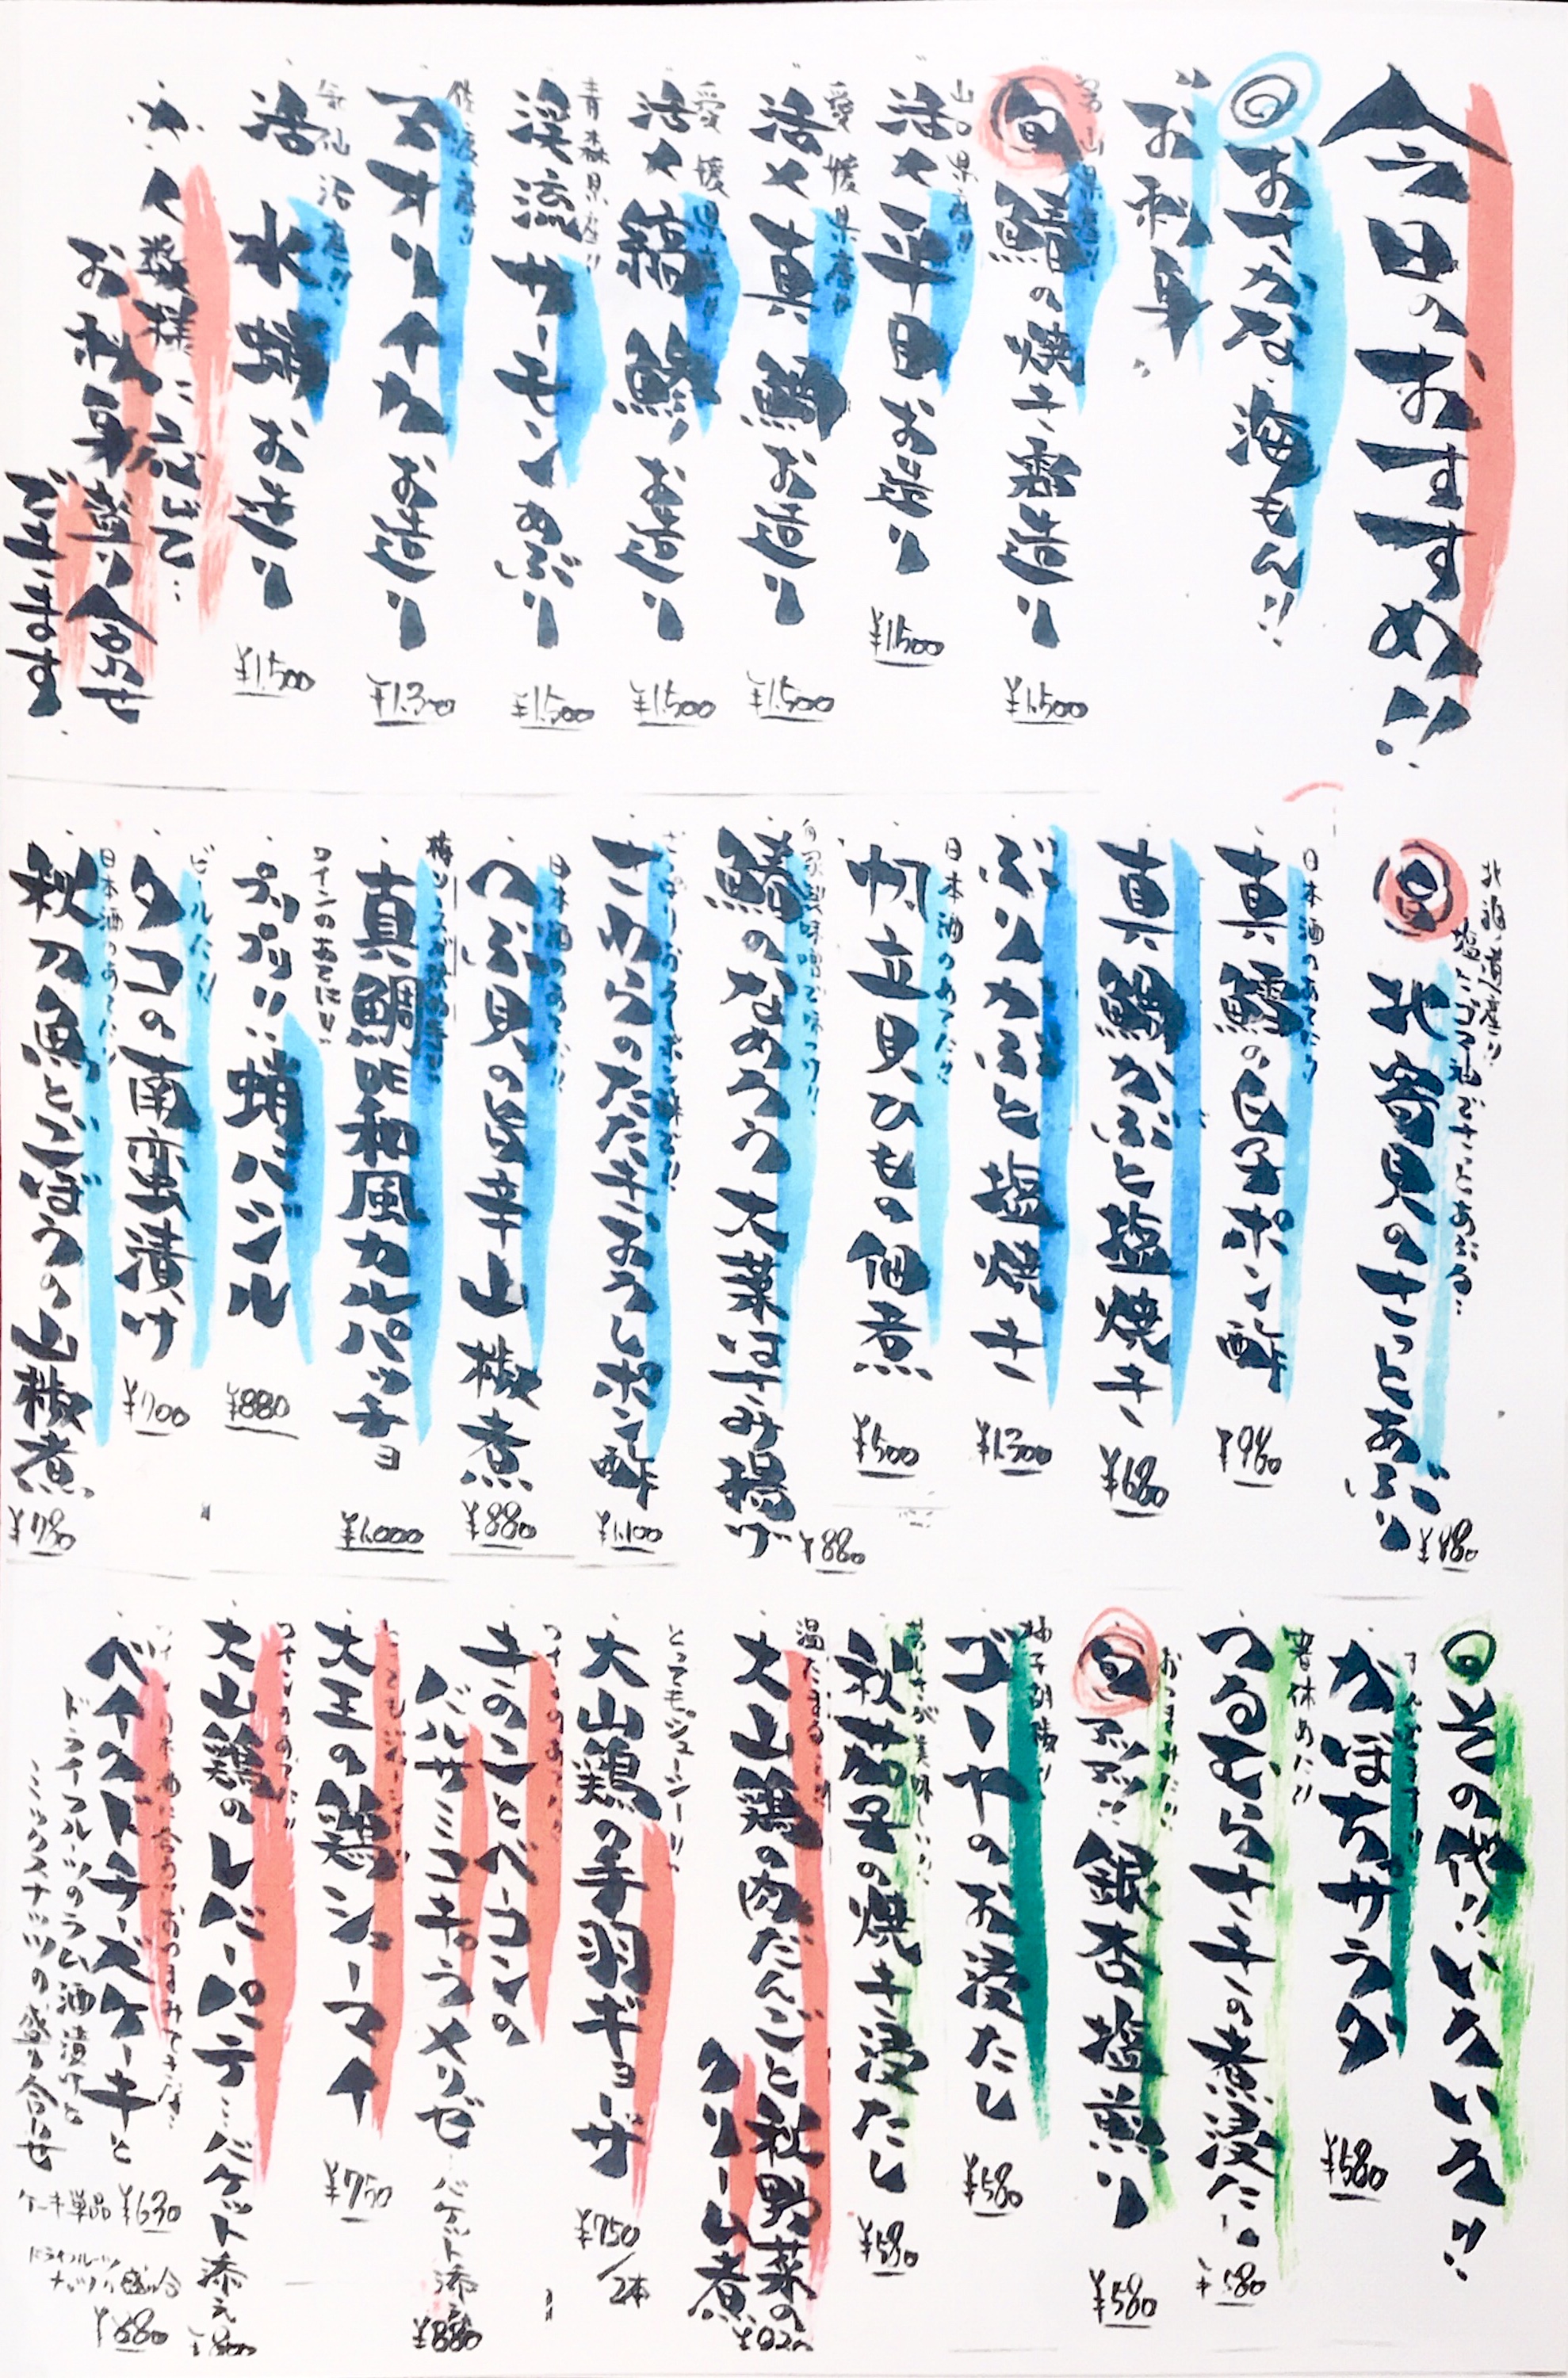 今日のおすすめ!!
◎おさかな、海もん!!
お刺身
富山県産!!
旬 鯖の焼き霜造り
¥1,500
山口県産!!
活〆平目お造り
¥1,500
愛媛県産!!
活〆真鯛お造り
¥1,500
愛媛県産!!
活〆縞鯵お造り
¥1,500
青森県産!!
渓流サーモンあぶり
¥1,500
佐渡産!!
アオリイカお造り
¥1,300
活水蛸お造り
¥1,500
人数様に応じて…
お刺身盛り合せ
できます
北海道産!!
旬 北寄貝のさっとあぶり
日本酒のあてに!!
真鱈の白子ポン酢
¥980
真鯛かぶと塩焼き
¥680
ぶりカぶと塩焼き
¥1,300
日本酒のあてに!!
帆立貝ひもの佃煮
¥500
鯖のなめろう大葉はさみ揚げ
¥880
さわらのたたきおろしポン酢
¥1,100
日本酒のあてに!!
つぶ貝の旨辛山椒煮
¥880
真鯛昆和風カルパッチョ
¥1,000
ワインのあてに!!
プリプリ!!蛸バジル
¥880
ビールに!!
タコの南蛮漬け
¥700
日本酒のあてに!!
秋刀魚とごぼうの山椒煮
¥780
◎その他!!いろいろ!!
かぼちゃサラダ
¥580
箸休めに!!
つるむらさきの煮浸し
¥580
おつまみに!!
旬 銀杏塩煎り
¥580
柚子胡椒!!
ゴーヤのお浸たし
¥580
秋茄子の焼き浸たし
¥580
大山鶏の肉だんごと秋野菜の
クリーム煮
とってもジューシー!!
大山鶏の手羽ギョーザ
¥750/2本
きのことベーコンの
バルサミコキャラメリゼ バケット添え
¥880
大王の鶏シューマイ
¥750
ワインのあてに!!
大山鶏のレバーパテ…バケット添え
¥800
ベイクドチーズケーキと
ドライフルーツのラム酒漬けと
ミックスナッツの盛り合わせ
ケーキ単品 ¥630
ドライフルーツ
ナッツ盛合
¥880